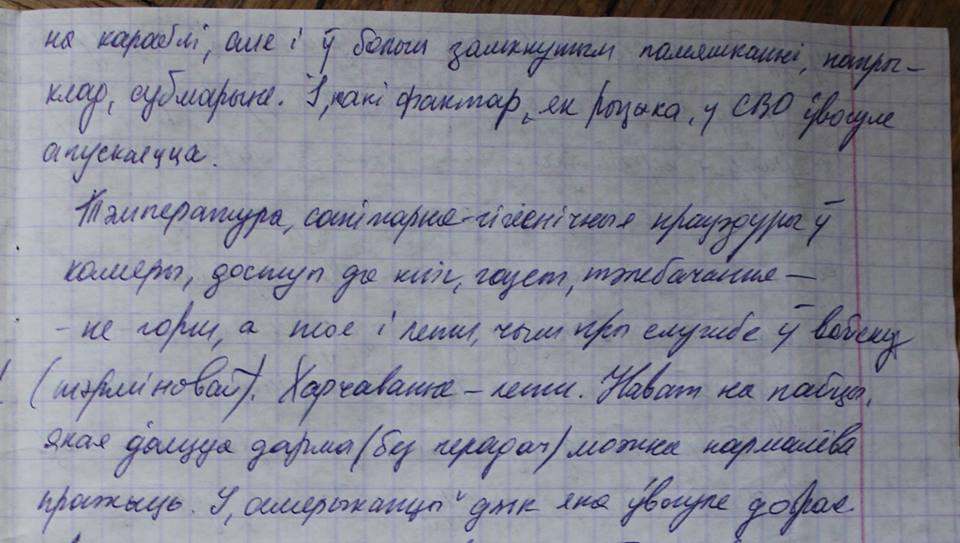 на караблі, але і ў больш замкнутым памяшканні, напры-
клад, субмарыне. І, такі фактар, як рызыка, у СВО ўвогуле
апускаецца.
Тэмпература, санітарна-гігіенічныя працэдуры ў
камеры, доступ да кніг, газет, тэлебачанне —
- не горш, а тое і лепш, чым пры службе ў войску
(тэрміновай). Харчаванне - лепш. Нават на пайцы,
якая даецца дарма (без перадач) можна нармалёва
пражыць. І, "амерыканцы" дык яна ўвогуле добрае